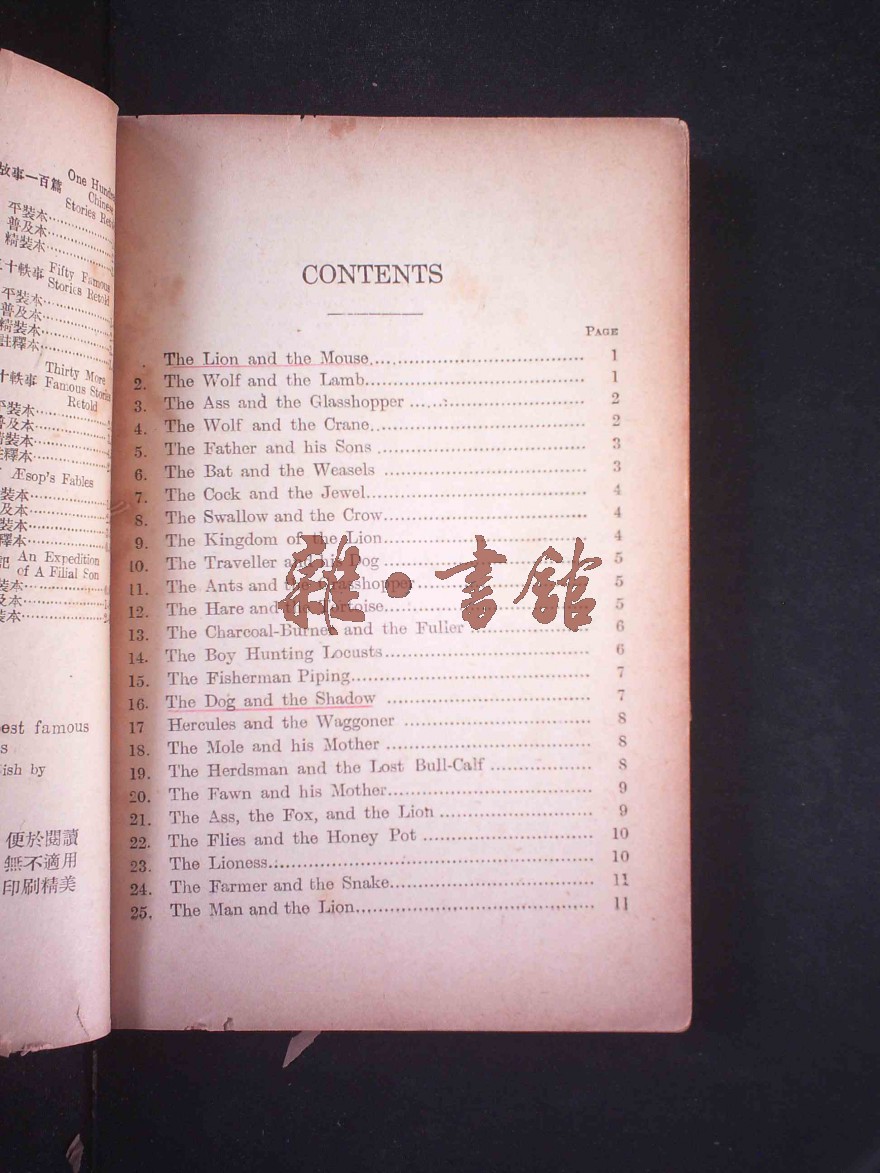 故事一百篇 One Hundre
Chinese
Stories Reto
平裝本
普及本
精裝本
十軼事 Fifty Famous
Stories Retold
平裝本
普及本
精裝本
註釋本
Thirty More
十軼事 Famous Stories
Retold
平裝本
普及本
精裝本
註釋本
Æsop's Fables
裝本
及本
裝本
釋本
記 An Expedition
of A Filial Son
裝本
及本
裝本
est famous
s
ish by
便於閱讀
無不適用
印刷精美
CONTENTS
PAGE
. The Lion and the Mouse 1
2. The Wolf and the Lamb 1
3. The Ass and the Glasshopper 2
4. The Wolf and the Crane 2
5. The Father and his Sons 3
6. The Bat and the Weasels 3
7. The Cock and the Jewel 4
8. The Swallow and the Crow 4
9. The Kingdom of the Lion 4
10. The Traveller and his Dog 5
11. The Ants and the Grasshopper 5
12. The Hare and the Tortoise 5
13. The Charcoal-Burner and the Fuller 6
14. The Boy Hunting Locusts 6
15. The Fisherman Piping 7
16. The Dog and the Shadow 7
17 Hercules and the Waggoner 8
18. The Mole and his Mother 8
19. The Herdsman and the Lost Bull-Calf 8
20. The Fawn and his Mother 9
21. The Ass, the Fox, and the Lion 9
22. The Flies and the Honey Pot 10
23. The Lioness 10
24. The Farmer and the Snake 11
25. The Man and the Lion 11
雜·書館